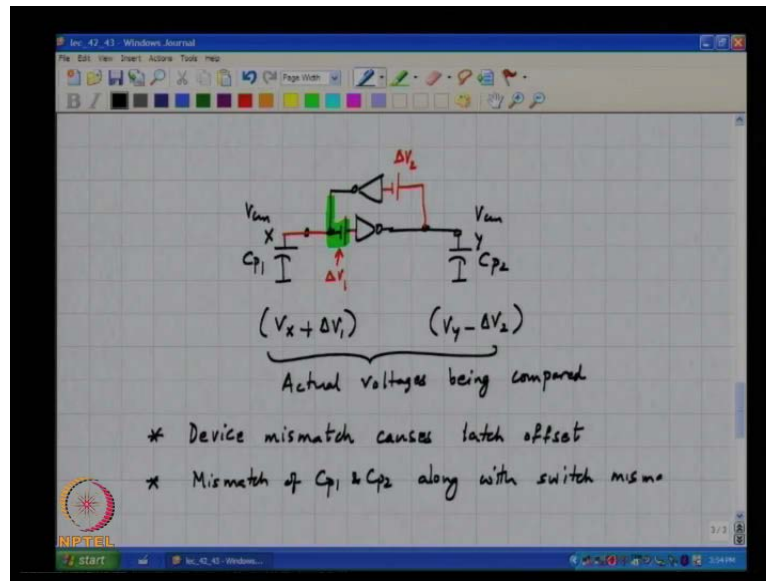 lec_42_43 - Windows Journal
File Edit View Insert Actions Tools Help
Page Width
B I
ΔV₂
Vcm Vcm
X Y
Cp₁ Cp₂
ΔV₁
(Vx + ΔV₁) (Vy - ΔV₂)
Actual voltages being compared
* Device mismatch causes latch offset
* Mismatch of Cp₁ & Cp₂ along with switch misma
3/3
NPTEL
start lec_42_43 - Windows... 3:54 PM